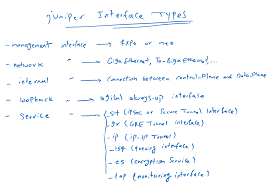 juniper Interface Types
- management interface → fxp0 or me0
- network " → GigaEthernet, Te-GigaEthernet, ...
- internal " → connection between control-Plane and Data-Plane
- loopback " → logical always-up interface
- Service " → - st (IPSec or Secure Tunnel interface)
- gr (GRE Tunnel interface)
- ip (ip-ip Tunnel)
- lsq (queuing interface)
- es (encryption service)
- (monitoring interface)